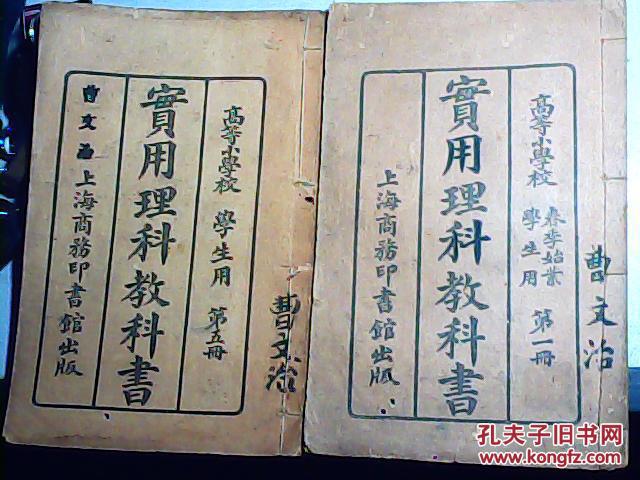 高等小學校 學生用 第五冊
實用理科教科書
上海商務印書館出版
曹文治
曹文治
高等小學校 春季始業 學生用 第一冊
實用理科教科書
上海商務印書館出版
曹文治
孔夫子旧书网
www.kongfz.com